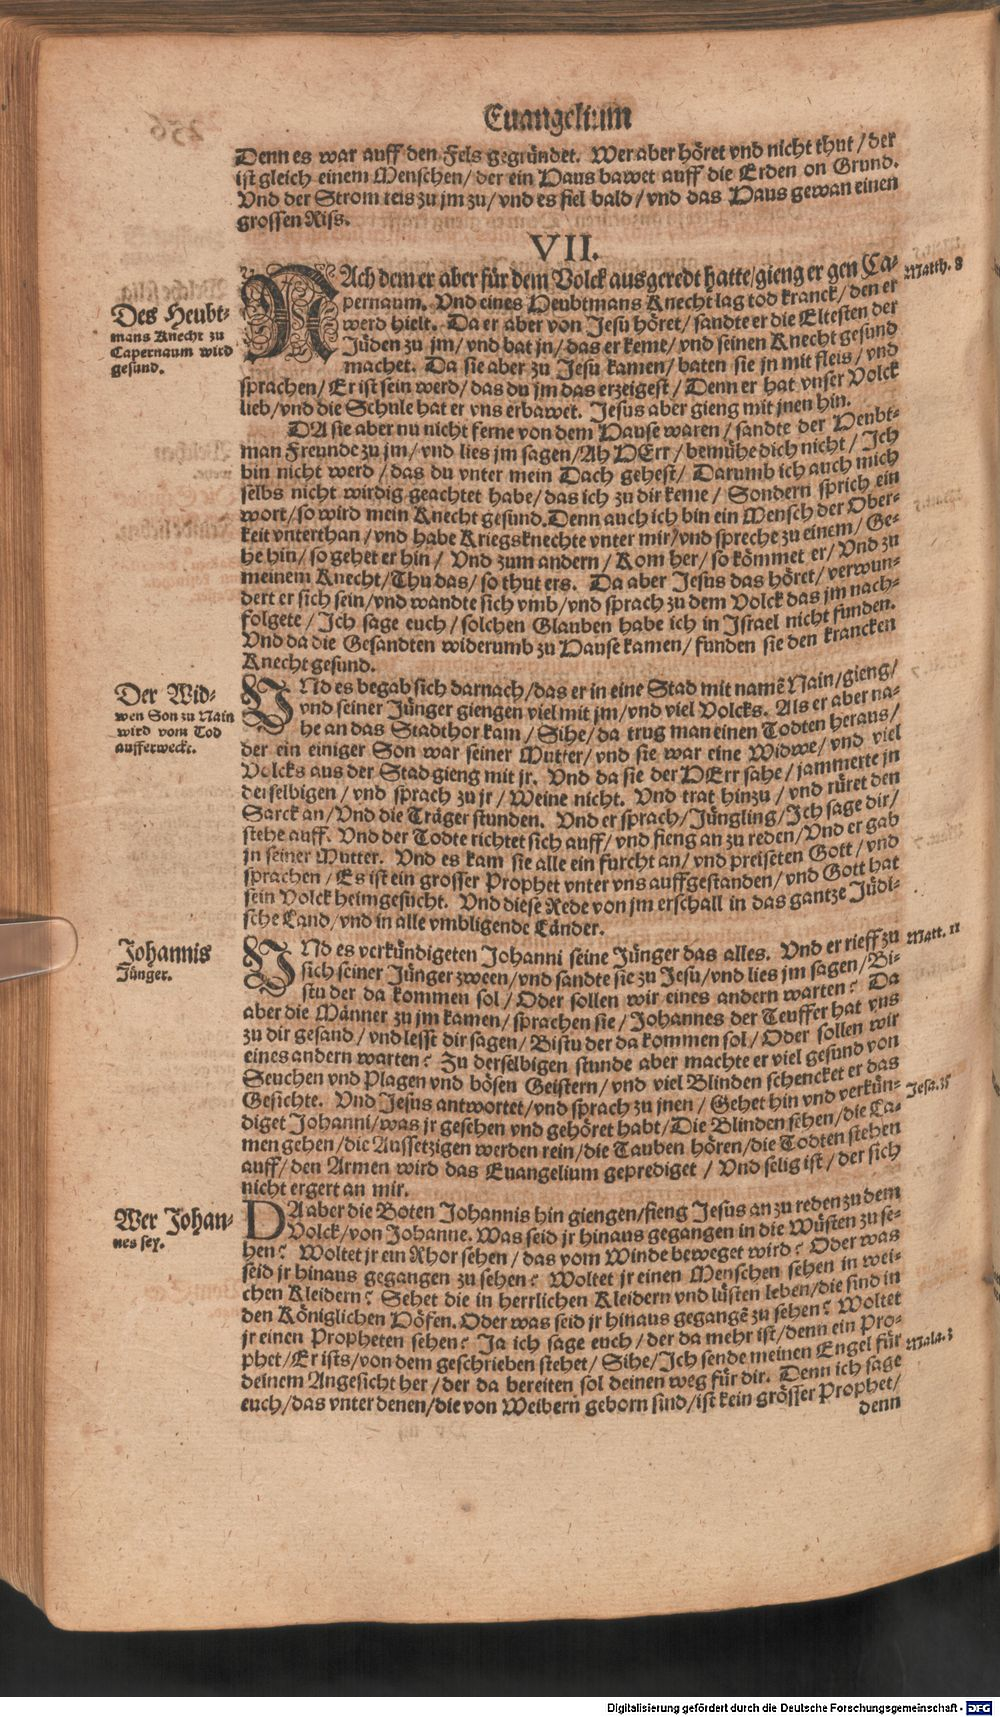 Euangelium
Denn es war auff den Fels gegründet. Wer aber höret vnd nicht thut / der
ist gleich einem Menschen / der ein Haus bawet auff die Erden on Grund.
Vnd der Strom reis zu jm zu / vnd es fiel bald / vnd das Haus gewan einen
grossen Riss.
VII.
NAch dem er aber für dem Volck ausgeredt hatte / gieng er gen Ca-
Matth. 8
pernaum. Vnd eines Heubtmans Knecht lag tod kranck / den er
werd hielt. Da er aber von Jesu höret / sandte er die Eltesten der
Jüden zu jm / vnd bat jn / das er keme / vnd seinen Knecht gesund
machet. Da sie aber zu Jesu kamen / baten sie jn mit fleis / vnd
Des Heubt-
mans Knecht zu
Capernaum wird
gesund.
sprachen / Er ist sein werd / das du jm das erzeigest / Denn er hat vnser Volck
lieb / vnd die Schule hat er vns erbawet. Jesus aber gieng mit jnen hin.
DA sie aber nu nicht ferne von dem Hause waren / sandte der Heubt-
man Freunde zu jm / vnd lies jm sagen / Ah HErr / bemühe dich nicht / Ich
bin nicht werd / das du vnter mein Dach gehest / Darumb ich auch mich
selbs nicht wirdig geachtet habe / das ich zu dir keme / Sondern sprich ein
wort / so wird mein Knecht gesund. Denn auch ich bin ein Mensch der Ober-
keit vnterthan / vnd habe Kriegsknechte vnter mir / vnd spreche zu einem / Ge-
he hin / so gehet er hin / Vnd zum andern / Kom her / so kömmet er / Vnd zu
meinem Knecht / Thu das / so thut ers. Da aber Jesus das höret / verwun-
dert er sich sein / vnd wandte sich vmb / vnd sprach zu dem Volck das jm nach-
folgete / Ich sage euch / solchen Glauben habe ich in Israel nicht funden.
Vnd da die Gesandten widerumb zu Hause kamen / funden sie den krancken
Knecht gesund.
VNd es begab sich darnach / das er in eine Stad mit namẽ Nain / gieng /
vnd seiner Jünger giengen viel mit jm / vnd viel Volcks. Als er aber na-
he an das Stadthor kam / Sihe / da trug man einen Todten heraus /
Der Wid-
wen Son zu Nain
wird vom Tod
aufferweckt.
der ein einiger Son war seiner Mutter / vnd sie war eine Widwe / vnd viel
Volcks aus der Stad gieng mit jr. Vnd da sie der HErr sahe / jammerte jn
derselbigen / vnd sprach zu jr / Weine nicht. Vnd trat hinzu / vnd rüret den
Sarck an / Vnd die Träger stunden. Vnd er sprach / Jüngling / Ich sage dir /
stehe auff. Vnd der Todte richtet sich auff / vnd fieng an zu reden / Vnd er gab
jn seiner Mutter. Vnd es kam sie alle ein furcht an / vnd preiseten Gott / vnd
sprachen / Es ist ein grosser Prophet vnter vns auffgestanden / vnd Gott hat
sein Volck heimgesucht. Vnd diese Rede von jm erschall in das gantze Jüdi-
sche Land / vnd in alle vmbligende Länder.
VNd es verkündigeten Johanni seine Jünger das alles. Vnd er rieff zu
Matt. 11
sich seiner Jünger zween / vnd sandte sie zu Jesu / vnd lies jm sagen / Bi-
stu der da kommen sol / Oder sollen wir eines andern warten? Da
Johannis
Jünger.
aber die Männer zu jm kamen / sprachen sie / Johannes der Teuffer hat vns
zu dir gesand / vnd lesst dir sagen / Bistu der da kommen sol / Oder sollen wir
eines andern warten? Zu derselbigen stunde aber machte er viel gesund von
Seuchen vnd Plagen vnd bösen Geistern / vnd viel Blinden schencket er das
Gesichte. Vnd Jesus antwortet / vnd sprach zu jnen / Gehet hin vnd verkün-
Jesa. 35
diget Johanni / was jr gesehen vnd gehöret habt / Die Blinden sehen / die La-
men gehen / die Aussetzigen werden rein / die Tauben hören / die Todten stehen
auff / den Armen wird das Euangelium geprediget / Vnd selig ist / der sich
nicht ergert an mir.
DA aber die Boten Johannis hin giengen / fieng Jesus an zu reden zu dem
Volck / von Johanne. Was seid jr hinaus gegangen in die Wüsten zu se-
Wer Johan-
nes sey.
hen? Woltet jr ein Rhor sehen / das vom Winde beweget wird? Oder was
seid jr hinaus gegangen zu sehen? Woltet jr einen Menschen sehen in wei-
chen Kleidern? Sehet die in herrlichen Kleidern vnd lüsten leben / die sind in
den Königlichen Höfen. Oder was seid jr hinaus gegangẽ zu sehen? Woltet
jr einen Propheten sehen? Ja ich sage euch / der da mehr ist / denn ein Pro-
phet / Er ists / von dem geschrieben stehet / Sihe / Ich sende meinen Engel für
Mala. 3
deinem Angesicht her / der da bereiten sol deinen weg für dir. Denn ich sage
euch / das vnter denen / die von Weibern geborn sind / ist kein grösser Prophet /
denn
Digitalisierung gefördert durch die Deutsche Forschungsgemeinschaft - DFG